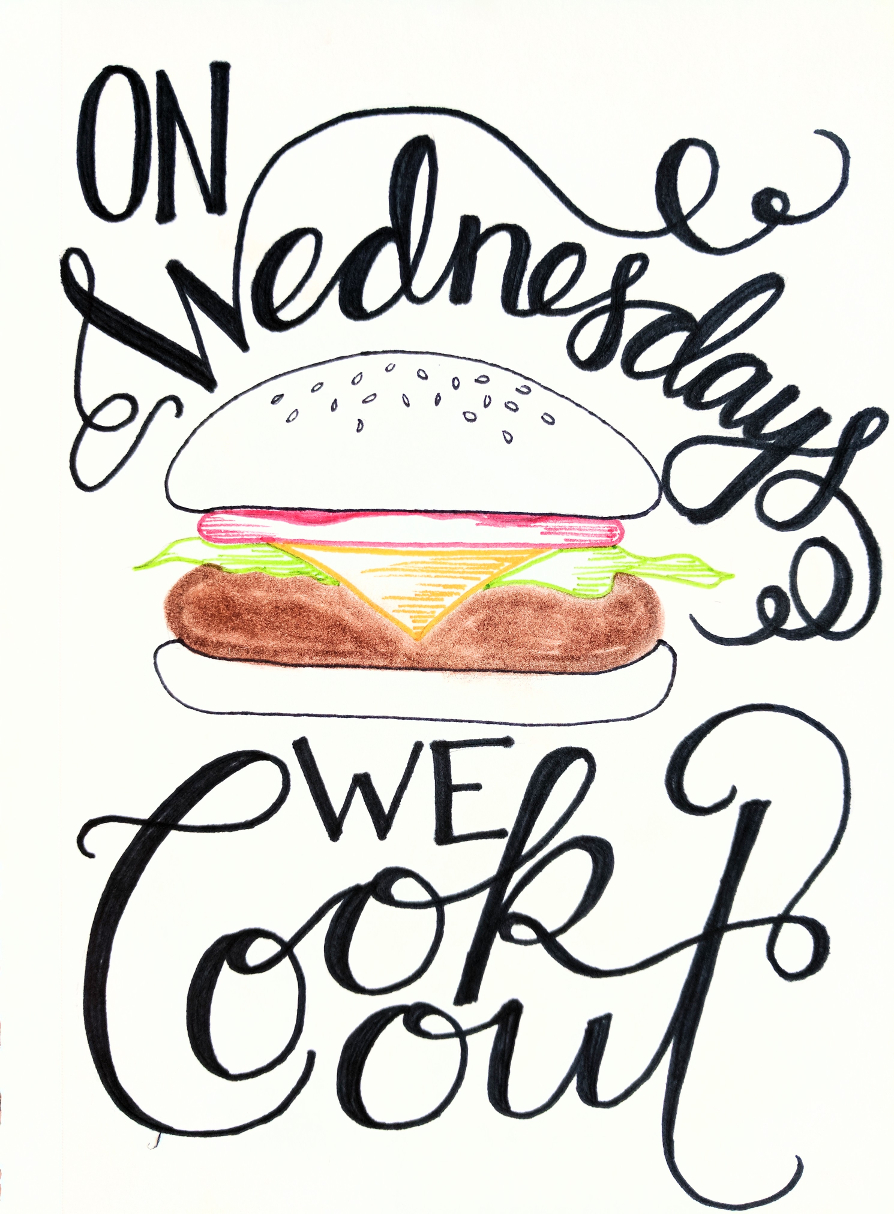 ON
Wednesdays
WE
Cook
out